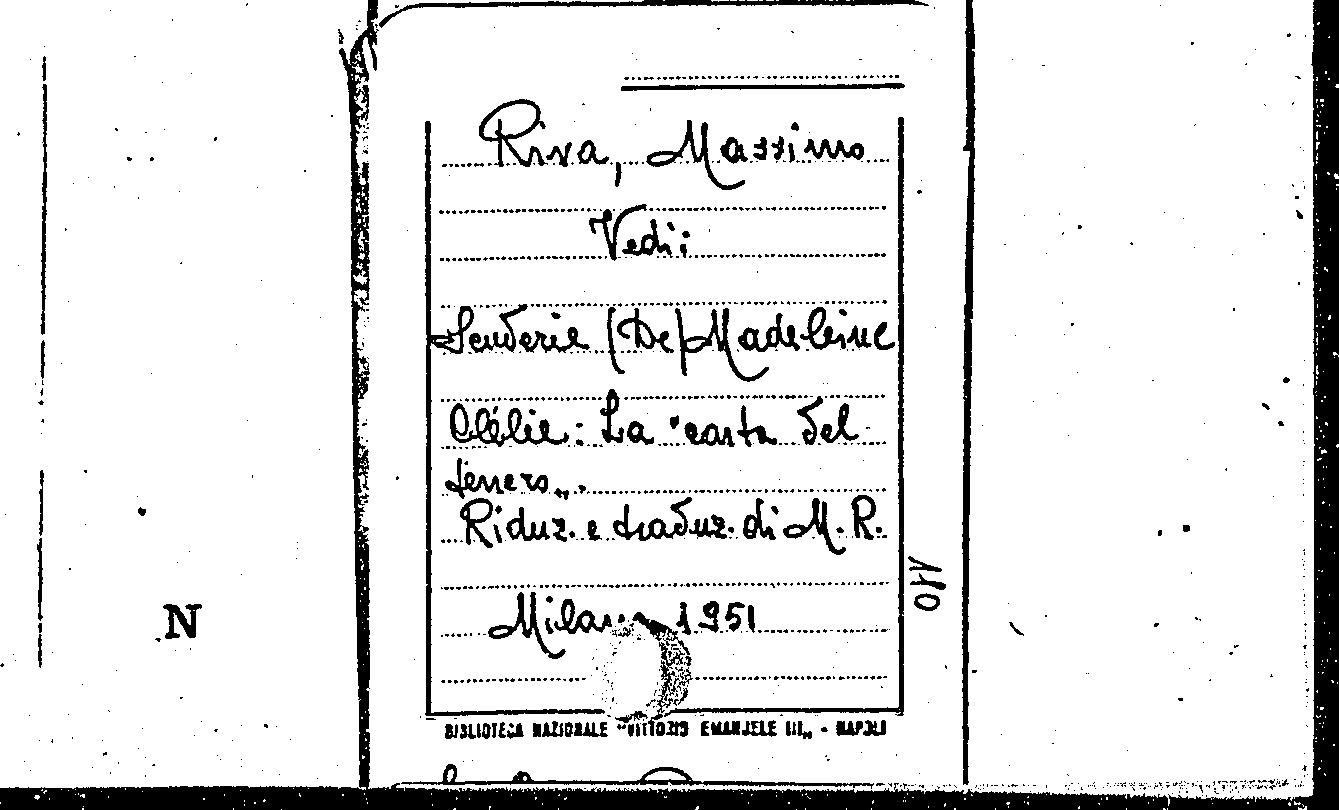 Riva, Massimo
Vedi:
Scuderie (De) Madeleine
Clélie: La "carta del
tenero„.
Riduz. e traduz. di M. R.
Milano 1951
BIBLIOTECA NAZIONALE "VITTORIO EMANUELE III„ - NAPOLI
N